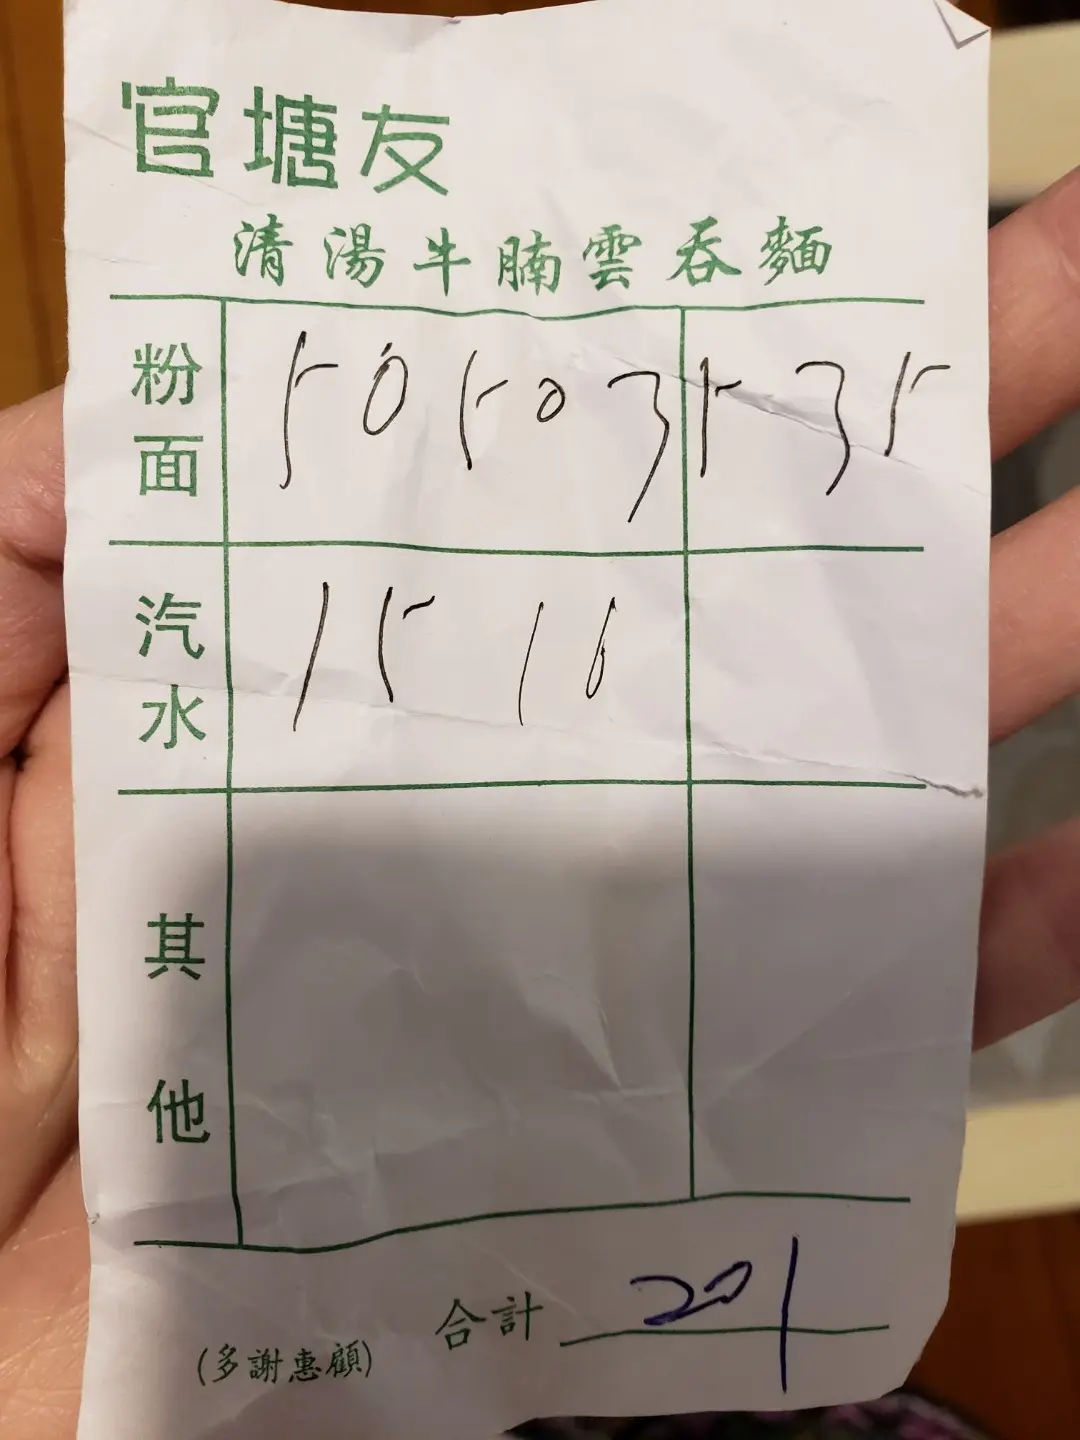 官塘友
清湯牛腩雲吞麵
粉面 50 50 35 35
汽水 15 16
其他
合計 201
(多謝惠顧)